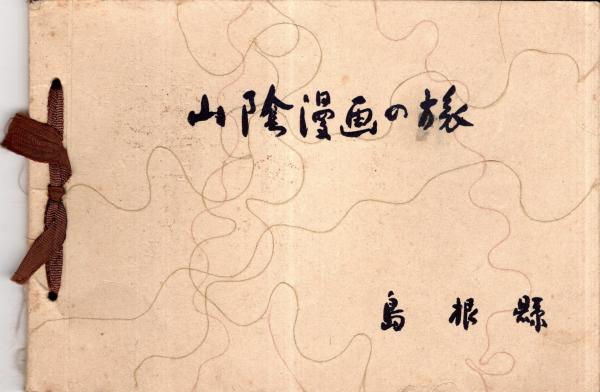 山陰漫画の旅
島根縣